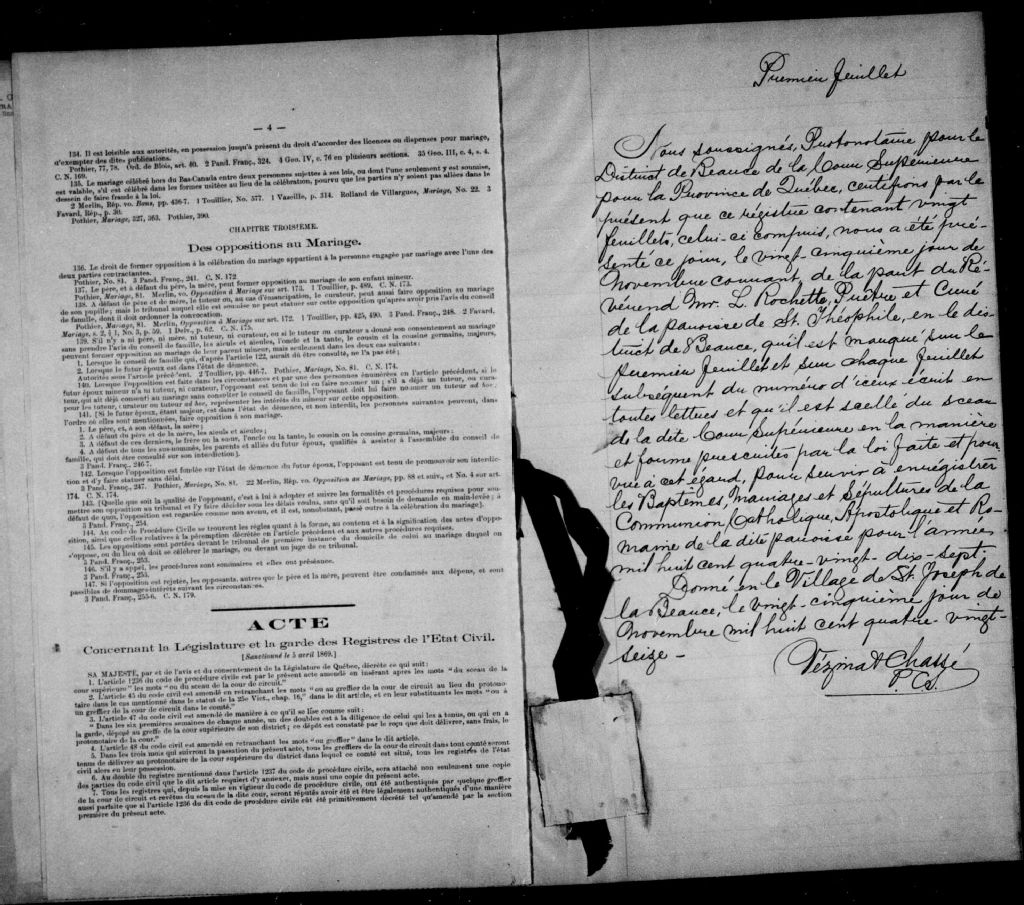 — 4 —
134. Il est loisible aux autorités, en possession jusqu'à présent du droit d'accorder des licences ou dispenses pour mariage,
d'exempter des dites publications.
Pothier, 77, 78. Ord. de Blois, art. 40. 2 Pand. Franç., 324. 4 Geo. IV, c. 76 en plusieurs sections. 35 Geo. III, c. 4, s. 4.
C. N. 169.
135. Le mariage célébré hors du Bas-Canada entre deux personnes sujettes à ses lois, ou dont l'une seulement y est soumise,
est valable, s'il est célébré dans les formes usitées au lieu de la célébration, pourvu que les parties n'y soient pas allées dans le
dessein de faire fraude à la loi.
2 Merlin, Rép. vo. Bans, pp. 436-7. 1 Touillier, No. 577. 1 Vazeille, p. 314. Rolland de Villargues, Mariage, No. 22. 3
Favard, Rép., p. 30.
Pothier, Mariage, 327, 363. Pothier, 390.
CHAPITRE TROISIÈME.
Des oppositions au Mariage.
136. Le droit de former opposition à la célébration du mariage appartient à la personne engagée par mariage avec l'une des
deux parties contractantes.
Pothier, No. 81. 3 Pand. Franç., 241. C. N. 172
137. Le père, et à défaut du père, la mère, peut former opposition au mariage de son enfant mineur.
Pothier, Mariage, 81. Merlin, vo. Opposition à Mariage sur art. 173. 1 Touillier, p. 489. C. N. 173.
138. A défaut de père et de mère, le tuteur ou, au cas d'émancipation, le curateur, peut aussi faire opposition au mariage
de son pupille; mais le tribunal auquel elle est soumise ne peut statuer sur cette opposition qu'après avoir pris l'avis du conseil
de famille, dont il doit ordonner la convocation.
Pothier, Mariage, 81. Merlin, Opposition à Mariage sur art. 172. 1 Touillier, pp. 425, 490. 3 Pand. Franç., 248. 2 Favard,
Mariage, s. 2, § 1, No. 3, p. 59. 1 Delv., p. 62. C. N. 175.
139. S'il n'y a ni père, ni mère, ni tuteur, ni curateur, ou si le tuteur ou curateur a donné son consentement au mariage
sans prendre l'avis du conseil de famille, les aïeuls et aïeules, l'oncle et la tante, le cousin et la cousine germains, majeurs,
peuvent former opposition au mariage de leur parent mineur, mais seulement dans les deux cas suivants:
1. Lorsque le conseil de famille qui, d'après l'article 122, aurait dû être consulté, ne l'a pas été;
2. Lorsque le futur époux est dans l'état de démence.
Autorités sous l'article précé'ent. 2 Touillier, pp. 446-7. Pothier, Mariage, No. 81. C. N. 174.
140. Lorsque l'opposition est faite dans les circonstances et par une des personnes énumérées en l'article précédent, si le
futur époux mineur n'a ni tuteur, ni curateur, l'opposant est tenu de lui en faire nommer un; s'il a déjà un tuteur, ou curateur,
qui ait déjà consenti au mariage sans consulter le conseil de famille, l'opposant doit lui faire nommer un tuteur ad hoc;
pour les tuteur, curateur ou tuteur ad hoc, représenter les intérêts du mineur sur cette opposition.
141. [Si le futur époux, étant majeur, est dans l'état de démence, et non interdit, les personnes suivantes peuvent, dans
l'ordre où elles sont mentionnées, faire opposition à son mariage.
1. Le père, et, à son défaut, la mère;
2. A défaut du père et de la mère, les aïeuls et aïeules;
3. A défaut de ces derniers, le frère ou la sœur, l'oncle ou la tante, le cousin ou la cousine germains, majeurs;
4. A défaut de tous les sus-nommés, les parents et alliés du futur époux, qualifiés à assister à l'assemblée du conseil de
famille, qui doit être consulté sur son interdiction].
3 Pand. Franç., 246-7.
142. Lorsque l'opposition est fondée sur l'état de démence du futur époux, l'opposant est tenu de promouvoir son interdiction
et d'y faire statuer sans délai.
3 Pand. Franç., 247. Pothier, Mariage, No. 81. 22 Merlin, Rép. vo. Opposition au Mariage, pp. 88 et suiv., et No. 4 sur art.
174. C. N. 174.
143. [Quelle que soit la qualité de l'opposant, c'est à lui à adopter et suivre les formalités et procédures requises pour soumettre
son opposition au tribunal et l'y faire décider sous les délais voulus, sans qu'il soit besoin de demande en main-levée; à
défaut de quoi, l'opposition est regardée comme non avenu, et il est, nonobstant, passé outre à la célébration du mariage].
3 Pand. Franç., 254.
144. Au code de Procédure Civile se trouvent les règles quant à la forme, au contenu et à la signification des actes d'opposition,
ainsi que celles relatives à la péremption décrétée en l'article précédent et aux autres procédures requises.
145. Les oppositions sont portées devant le tribunal de première instance du domicile de celui au mariage duquel on
s'oppose, ou du lieu où doit se célébrer le mariage, ou devant un juge de ce tribunal.
3 Pand. Franç., 253.
146. S'il y a appel, les procédures sont sommaires et elles ont préséance.
3 Pand. Franç., 255.
147. Si l'opposition est rejetée, les opposants, autres que le père et la mère, peuvent être condamnés aux dépens, et sont
passibles de dommages-intérêts suivant les circonstances.
3 Pand. Franç., 255-6. C. N. 179.
ACTE
Concernant la Législature et la garde des Registres de l'Etat Civil.
[Sanctionné le 5 avril 1869.]
SA MAJESTÉ, par et de l'avis et du consentement de la Législature de Québec, décrète ce qui suit:
1. L'article 1236 du code de procédure civile est par le présent acte amendé en insérant après les mots "du sceau de la
cour supérieure" les mots "ou du sceau de la cour de circuit."
2. L'article 45 du code civil est amendé en retranchant les mots "ou au greffier de la cour de circuit au lieu du protonotaire
dans le cas mentionné dans le statut de la 25e Vict., chap. 16," dans le dit article, et en leur substituant les mots "ou à
un greffier de la cour de circuit dans le comté."
3. L'article 47 du code civil est amendé de manière à ce qu'il se lise comme suit:
"Dans les six premières semaines de chaque année, un des doubles est à la diligence de celui qui les a tenus, ou qui en a
la garde, déposé au greffe de la cour supérieure de son district; ce dépôt est constaté par le reçu que doit délivrer, sans frais, le
protonotaire de la cour."
4. L'article 48 du code civil est amendé en retranchant les mots "ou greffier" dans le dit article.
5. Dans les trois mois qui suivront la passation du présent acte, tous les greffiers de la cour de circuit dans tout comté seront
tenus de délivrer au protonotaire de la cour supérieure du district dans lequel ce comté est situé, tous les registres de l'état
civil alors en leur possession.
6. Au double du registre mentionné dans l'article 1237 du code de procédure civile, sera attaché non seulement une copie
des parties du code civil que le dit article requiert d'y annexer, mais aussi une copie du présent acte.
7. Tous les registres qui, depuis la mise en vigueur du code de procédure civile, ont été authentiqués par quelque greffier
de la cour de circuit et revêtus du sceau de la dite cour, seront réputés avoir été et être légalement authentiqués d'une manière
aussi parfaite que si l'article 1236 du dit code de procédure civile eût été primitivement décrété tel qu'amendé par la section
première du présent acte.
Premier feuillet
Nous soussignés, Protonotaire pour le
District de Beauce de la Cour Supérieure
pour la Province de Québec, certifions par le
présent que ce régistre contenant vingt
feuillets, celui-ci compris, nous a été pré-
senté ce jour, le vingt-cinquième jour de
Novembre courant, de la part du Ré-
vérend Mr. L. Rochette, Prêtre et Curé
de la paroisse de St. Théophile, en le dis-
trict de Beauce, qu'il est marqué sur le
premier feuillet et sur chaque feuillet
subséquent du numéro d'iceux écrit en
toutes lettres et qu'il est scellé du sceau
de la dite Cour Supérieure en la manière
et forme prescrites par la loi faite et pour-
vue à cet égard, pour servir à enrégistrer
les Baptêmes, Mariages et Sépultures de la
Communion Catholique, Apostolique et Ro-
maine de la dite paroisse pour l'année
mil huit cent quatre-vingt-dix-sept.
Donné en le Village de St. Joseph de
la Beauce, le vingt-cinquième jour de
Novembre mil huit cent quatre-vingt-
seize -
Vézina & Chassé
P. C. S.